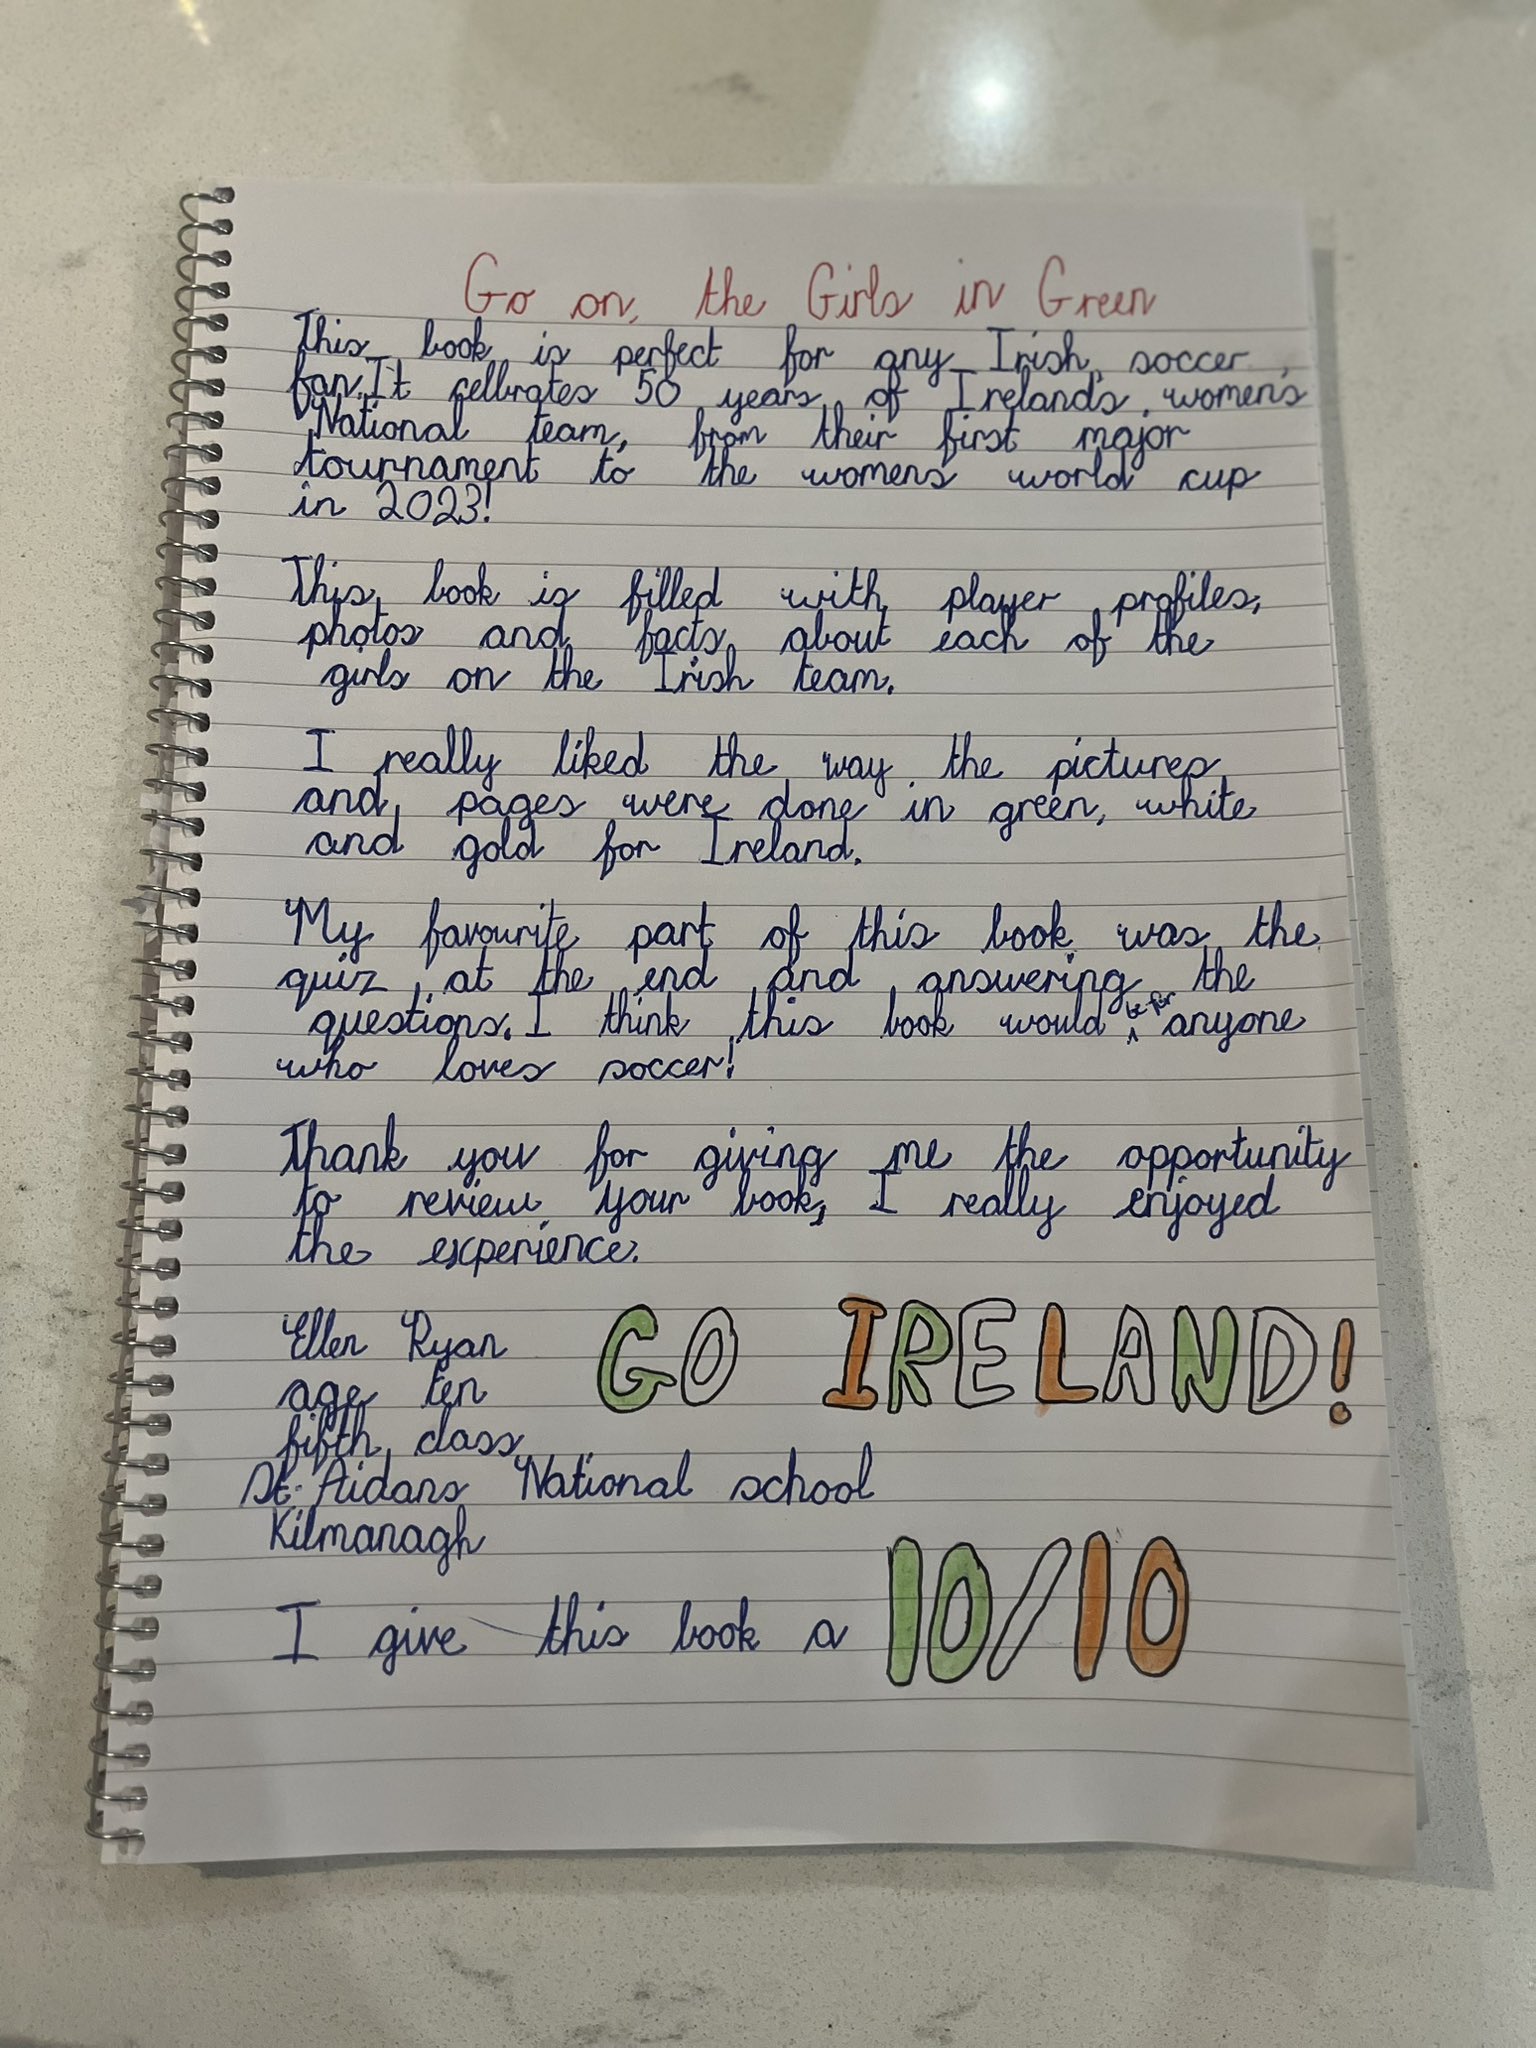 Go on, the Girls in Green
This book is perfect for any Irish soccer
fan. It cellbrates 50 years of Irelands womens
National team, from their first major
tournament to the womens world cup
in 2023!
This book is filled with player profiles,
photos and facts about each of the
girls on the Irish team.
I really liked the way the pictures
and pages were done in green, white
and gold for Ireland.
My favourite part of this book was the
quiz at the end and answering the
questions. I think this book would be for anyone
who loves soccer!
Thank you for giving me the opportunity
to review your book, I really enjoyed
the experience.
Ellen Ryan GO IRELAND!
age ten
fifth class
St. Aidans National school
Kilmanagh
I give this book a 10/10